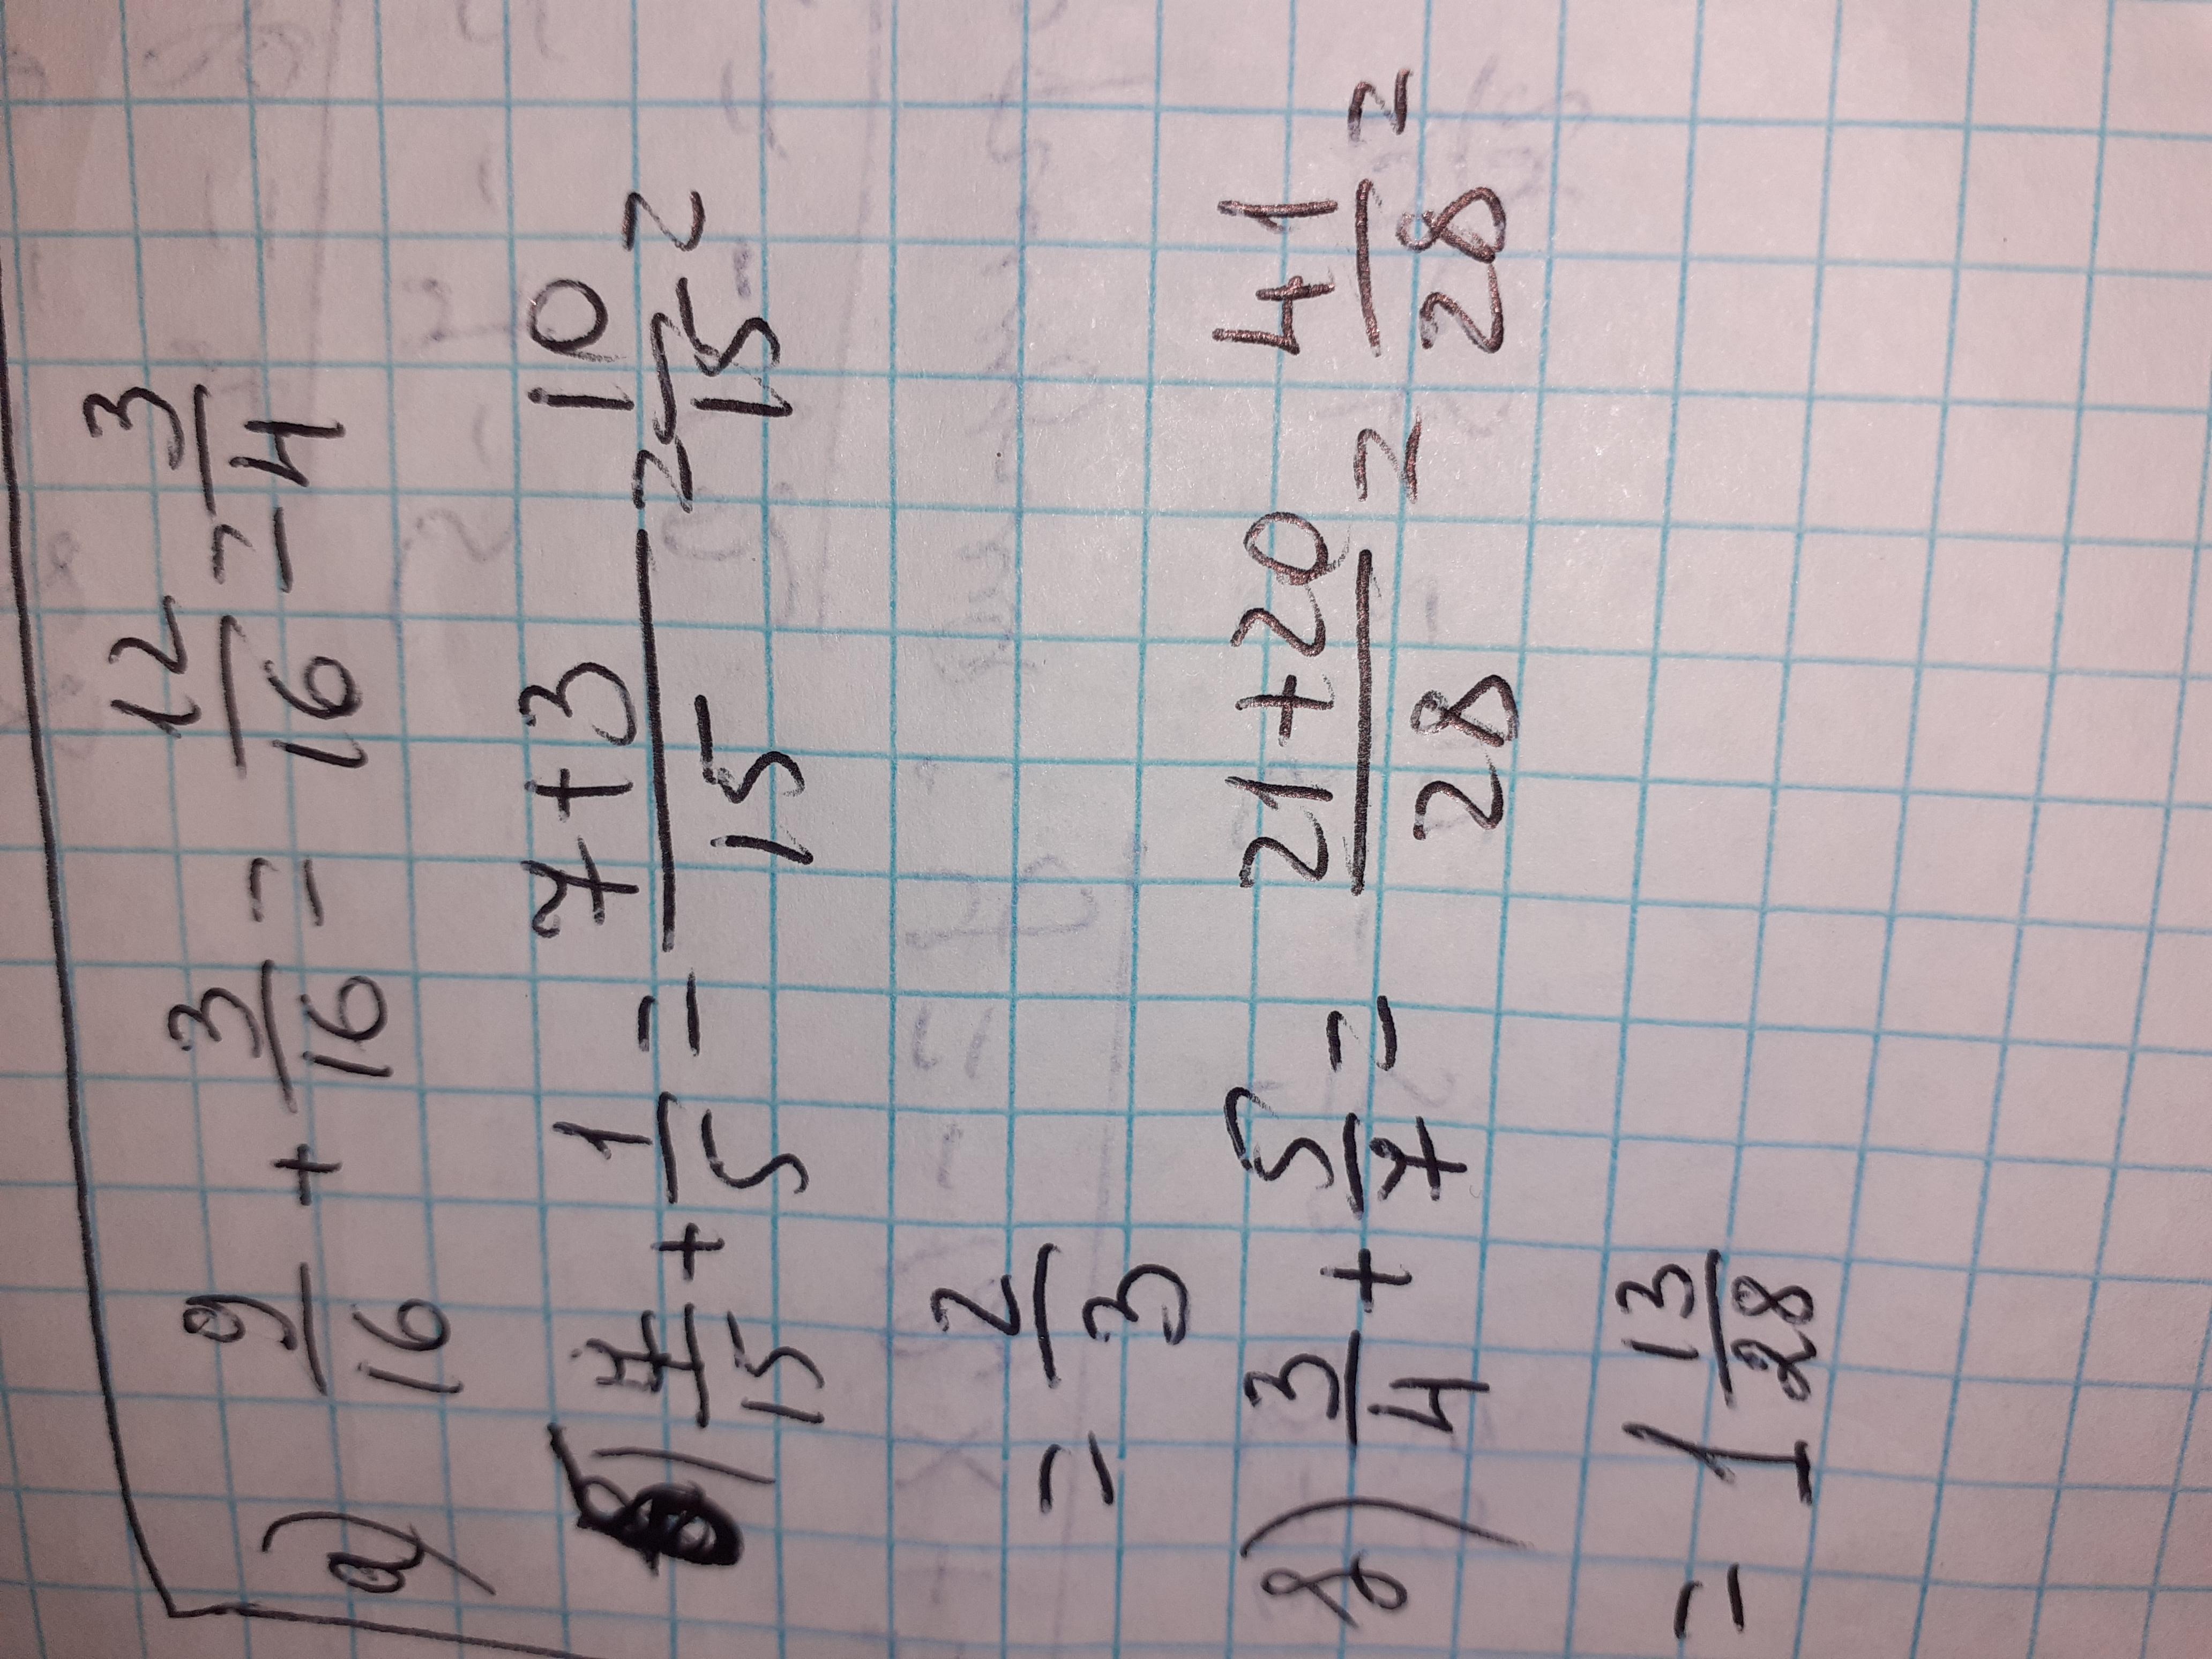 а) 9/16 + 3/16 = 12/16 = 3/4
б) 7/15 + 1/5 = (7+3)/15 = 10/15 =
= 2/3
в) 3/4 + 5/7 = (21+20)/28 = 41/28 =
= 1 13/28